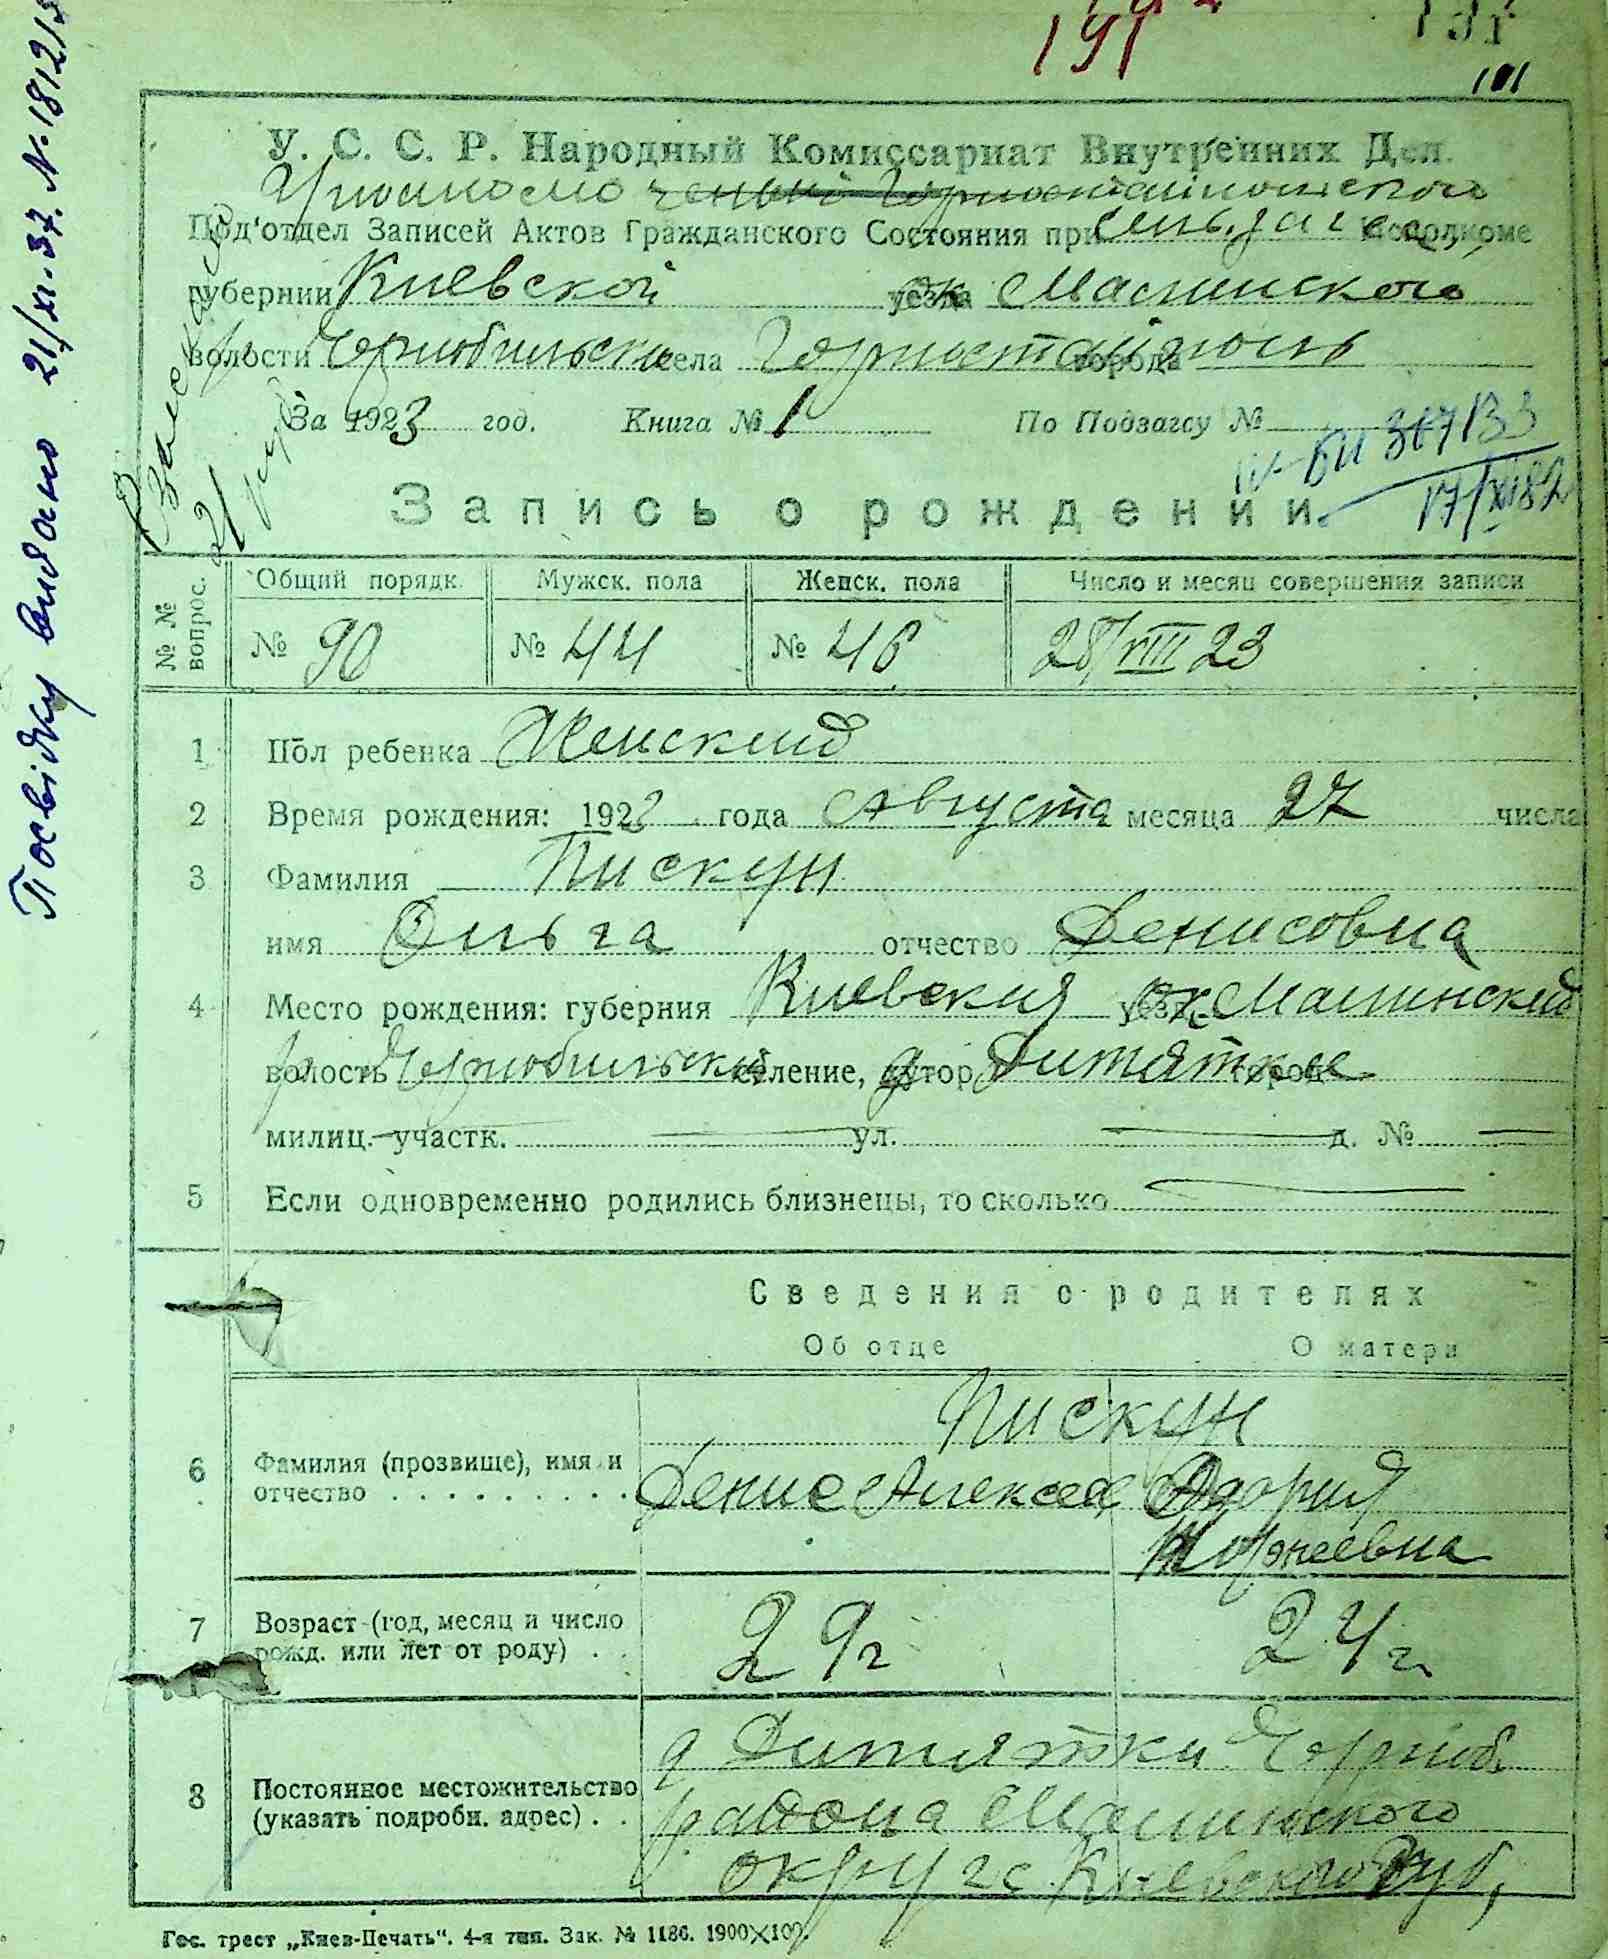 Посвідку видано 21/XI.37. № 1812/
131
101
У. С. С. Р. Народный Комиссариат Внутренних Дел.
Под'отдел Записей Актов Гражданского Состояния при Исполкоме
губернии Киевской уезда ок Малинского
волости р Чернобильски села Горностайполь города
За 1923 год. Книга № 1 По Подзагсу №
17/XI 82
Запись о рождении.
№ № вопрос.
Общий порядк. Мужск. пола Женск. пола Число и месяц совершения записи
№ 90 № 44 № 46 28/VIII 23
1 Пол ребенка Женский
2 Время рождения: 1923 года Августа месяца 27 числа
3 Фамилия Пискун
имя Ольга отчество Денисовна
4 Место рождения: губерния Киевская уезд ок Малинский
волость р Чернобильский селение, хутор д Дитятки город
милиц. участк. ул. д. №
5 Если одновременно родились близнецы, то сколько
Сведения о родителях
Об отце О матери
Пискун
6 Фамилия (прозвище), имя и отчество
Денис Алексее
7 Возраст (год, месяц и число рожд. или лет от роду) 29 г 24 г.
8 Постоянное местожительство (указать подробн. адрес)
д Дитятки Черноб.
района Малинского
округа Киевской Губ,
Гос. трест „Киев-Печать“. 4-я тип. Зак. № 1186. 1900×100.